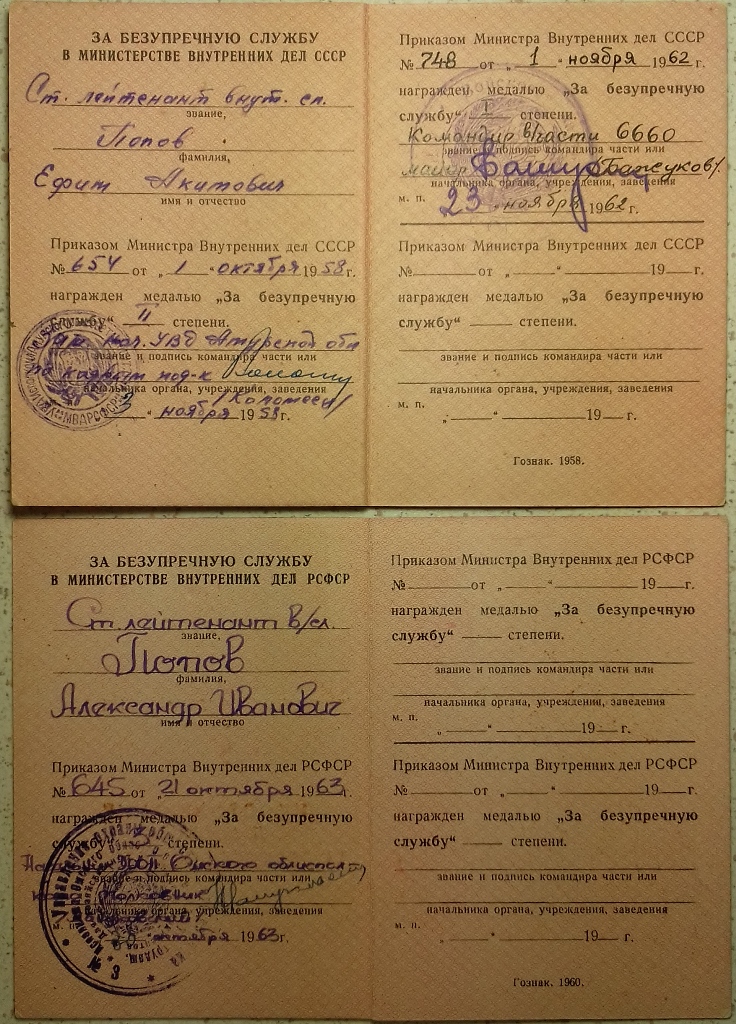 ЗА БЕЗУПРЕЧНУЮ СЛУЖБУ
В МИНИСТЕРСТВЕ ВНУТРЕННИХ ДЕЛ СССР
Ст. лейтенант внут. сл.
звание,
Попов
фамилия,
Ефим Акимович
имя и отчество
Приказом Министра Внутренних дел СССР
№ 654 от „ 1 “ октября 1958 г.
награжден медалью „За безупречную
службу“ II степени.
Зам. нач. УВД Амурской обл
звание и подпись командира части или
по кадрам под-к
начальника органа, учреждения, заведения
“ ноября 1958 г.
Приказом Министра Внутренних дел СССР
№ 748 от „ 1 “ ноября 1962 г.
награжден медалью „За безупречную
службу“ I степени.
Командир в/части 6660
звание и подпись командира части или
майор
начальника органа, учреждения, заведения
м. п. 23 ноября 1962 г.
Приказом Министра Внутренних дел СССР
№ от „ “ 19 г.
награжден медалью „За безупречную
службу“ степени.
звание и подпись командира части или
начальника органа, учреждения, заведения
м. п.
„ “ 19 г.
Гознак. 1958.
ЗА БЕЗУПРЕЧНУЮ СЛУЖБУ
В МИНИСТЕРСТВЕ ВНУТРЕННИХ ДЕЛ РСФСР
Ст. лейтенант в/сл.
звание,
Попов
фамилия,
Александр Иванович
имя и отчество
Приказом Министра Внутренних дел РСФСР
№ 645 от „21 октября 1963 г.
награжден медалью „За безупречную
службу“ степени.
Омского облисполкома
звание и подпись командира части или
полковник
начальника органа, учреждения, заведения
м. п. октября 1963 г.
Приказом Министра Внутренних дел РСФСР
№ от „ “ 19 г.
награжден медалью „За безупречную
службу“ степени.
звание и подпись командира части или
начальника органа, учреждения, заведения
м. п.
„ “ 19 г.
Приказом Министра Внутренних дел РСФСР
№ от „ “ 19 г.
награжден медалью „За безупречную
службу“ степени.
звание и подпись командира части или
начальника органа, учреждения, заведения
м. п.
„ “ 19 г.
Гознак. 1960.